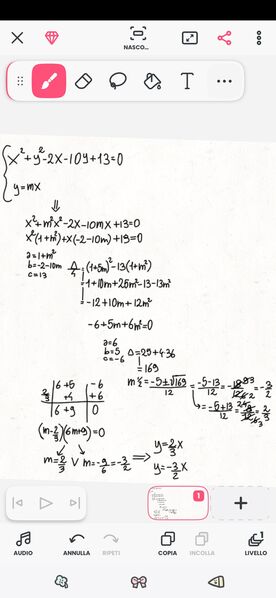 NASCO...
T
x²+y²-2x-10y+13=0
y=mx
⇓
x²+m²x²-2x-10mx+13=0
x²(1+m²)+x(-2-10m)+13=0
a=1+m²
b=-2-10m
c=13
Δ/4=(1+5m)²-13(1+m²)
=1+10m+25m²-13-13m²
=-12+10m+12m²
-6+5m+6m²=0
a=6
b=5
c=-6
Δ=25+4·36
=169
m½=-5±√169/12
=-5-13/12=-18/12=-3/2
=-5+13/12=8/12=2/3
6 +5 -6
2/3 +4 +6
6 +9 0
(m-2/3)(6m+9)=0
m=2/3 ∨ m=-9/6=-3/2 ⇒ y=2/3x
y=-3/2x
1
+
AUDIO ANNULLA RIPETI COPIA INCOLLA LIVELLO